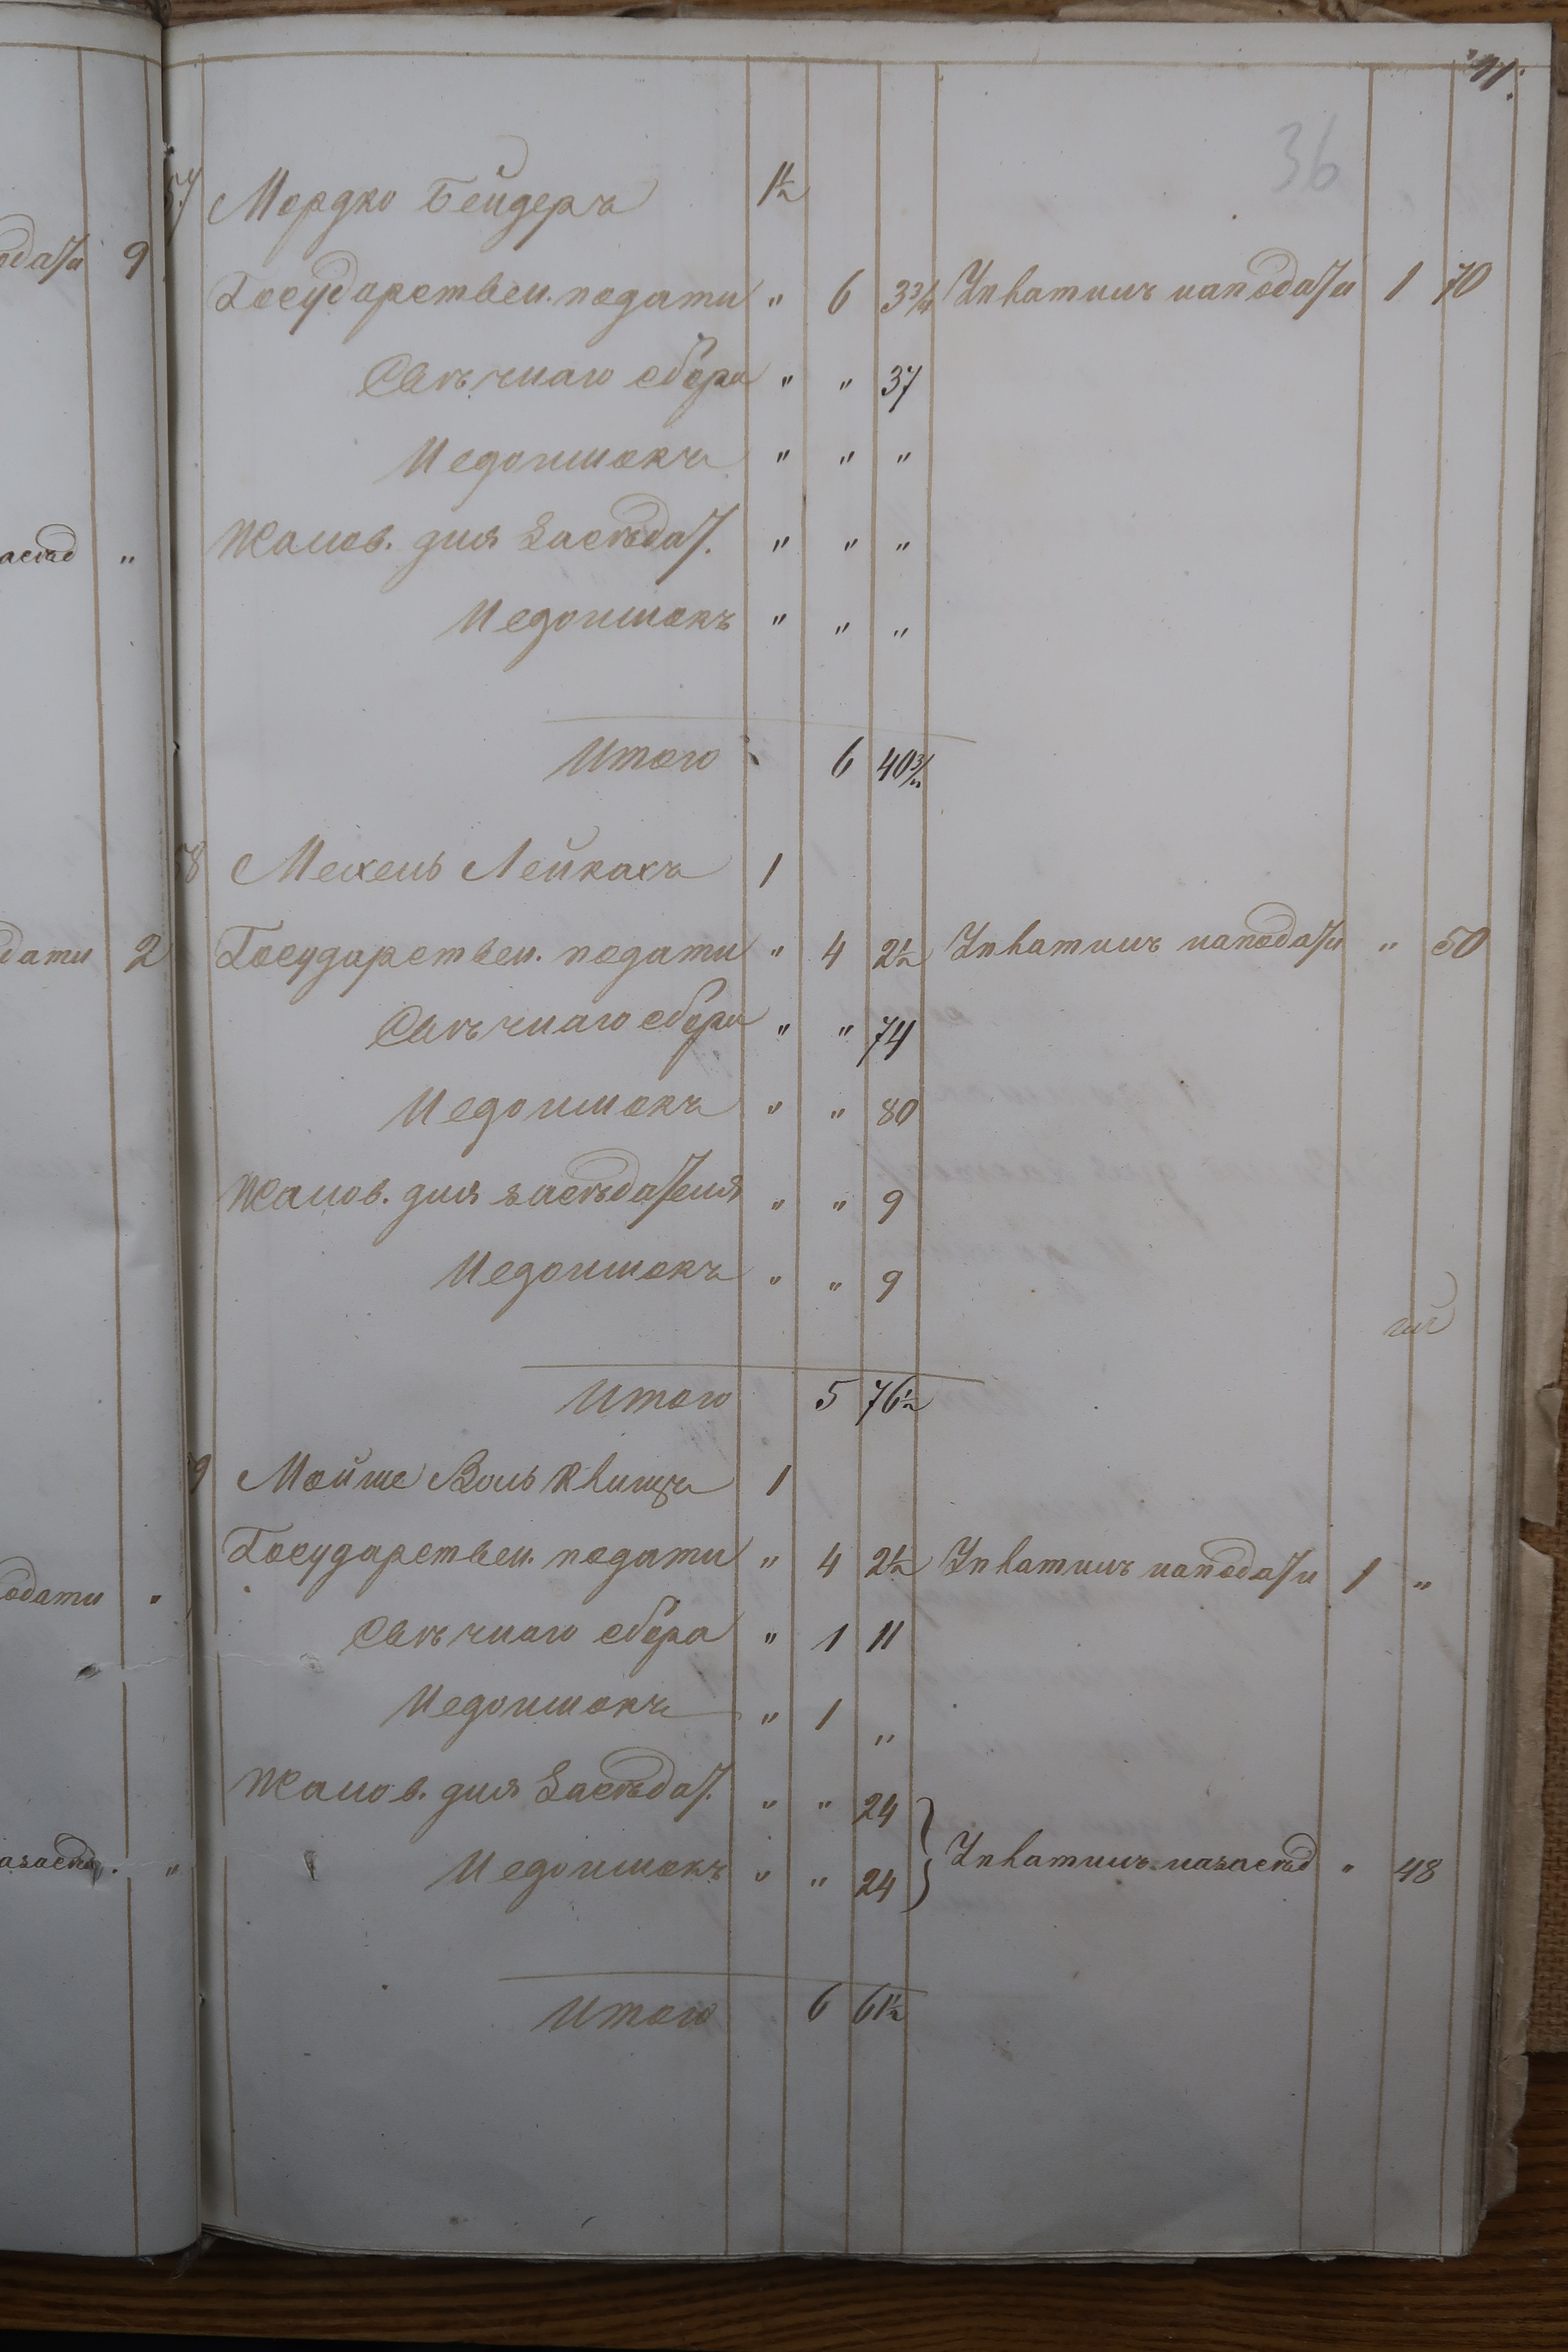 36
57 Мордко Бейдеръ 1½
Государствен. подати " 6 3¾ Упватилъ на подати 1 70
Свѣчнаго сбора " " 37
Недоимокъ " " "
Жалов. для Засѣдат. " " "
Недоимокъ " " "
Итого 6 40¾
58 Мехель Лейкахъ 1
Государствен. подати " 4 2½ Упватилъ на подати " 50
Свѣчнаго сбора " " 74
Недоимокъ " " 80
Жалов. для засѣдателя " " 9
Недоимокъ " " 9
Итого 5 76½
9 Мойше Воль 1
Государствен. подати " 4 2½ Упватилъ на подати 1 "
Свѣчнаго сбора " 1 11
Недоимокъ " 1 "
Жалов. для Засѣдат. " " 24
Недоимокъ " " 24 Упватилъ на засѣд " 48
Итого 6 61½